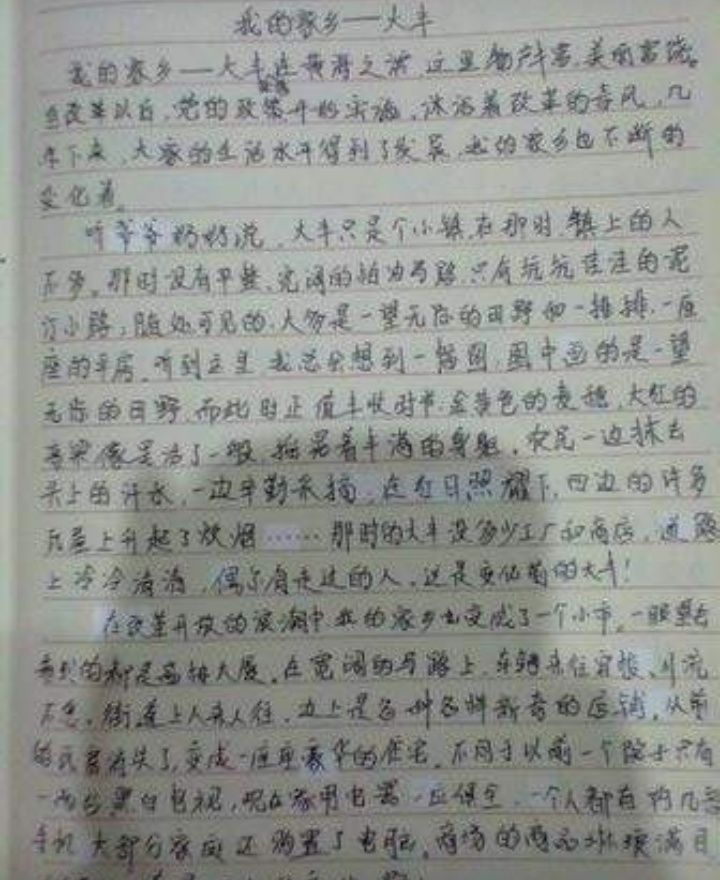 我的家乡——大丰
我的家乡——大丰连黄海之滨,这里物产丰富,美丽富饶。
自改革以后,党的政策开始实施,沐浴着改革的春风,几
年下来,大家的生活水平得到了发展,我的家乡也不断的
变化着。
听爷爷奶奶说,大丰只是个小镇,在那时,镇上的人
不多。那时没有平整、宽阔的柏油马路,只有坑坑洼洼的泥
汀小路,随处可见的,大多是一望无际的田野和一排排、一座
座的平房。听到这里,我总会想到一幅图,图中画的是一望
无际的田野,而此时正值丰收时节,金黄色的麦穗,大红的
高粱像是活了一般,摇晃着丰满的身躯,农民一边抹去
头上的汗水,一边辛勤采摘,在红日照耀下,四边的许多
瓦屋上升起了炊烟……那时的大丰没多少工厂和商店,道路
上冷冷清清,偶尔有走过的人,这是变化前的大丰!
在改革开放的浪潮中我的家乡也变成了一个小市。一眼望去
看到的都是高楼大厦。在宽阔的马路上,车辆来往穿梭、川流
不息,街道上人来人往,边上是各种各样新奇的店铺。从前
的瓦房消失了,变成一座座豪华的住宅。不同于以前一个院子只有
一两台黑白电视,现在家用电器一应俱全,一个人都有
手机,大部分家庭还购置了电脑。商场的商品琳琅满目